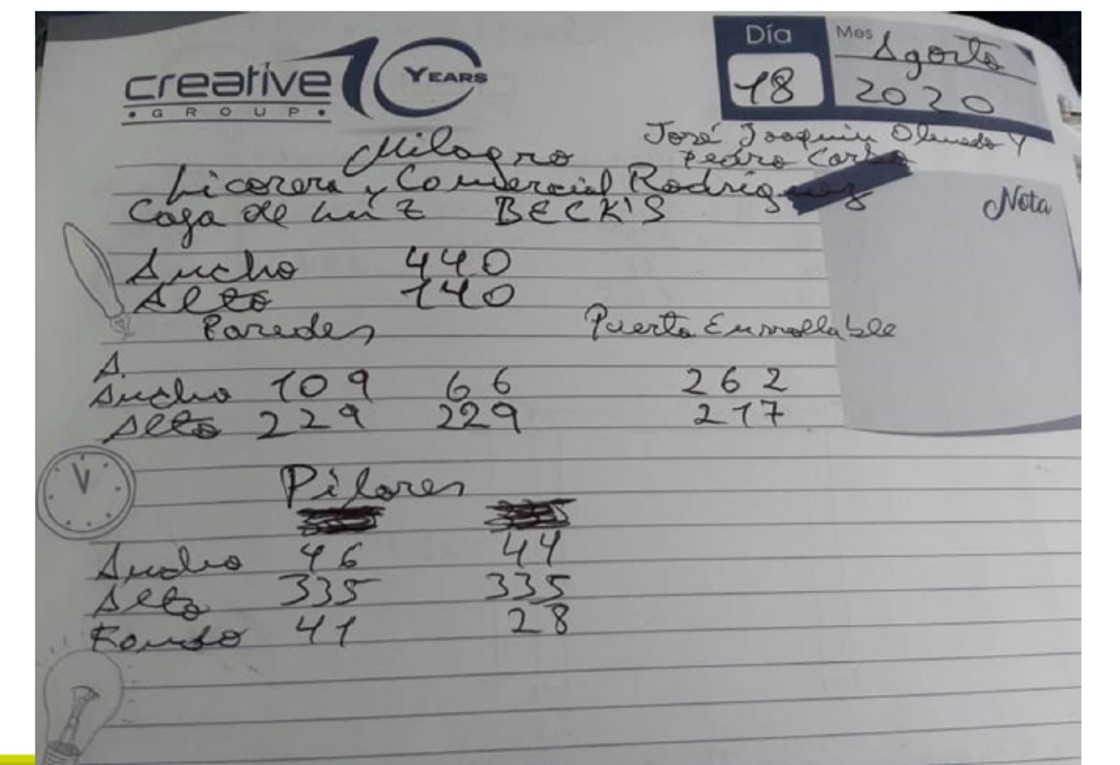 creative 10 YEARS
• GROUP •
Día 18
Mes Agosto
2020
José Joaquin Olmedo Y
Pedro Carbo
Milagro
Licorera y Comercial Rodriguez
Caja de Luz BECK'S
Nota
Ancho 440
Alto 140
Paredes Puerta Enrrollable
A.
Ancho 109 66 262
Alto 229 229 217
Pilares
Ancho 46 44
Alto 335 335
Fondo 41 28